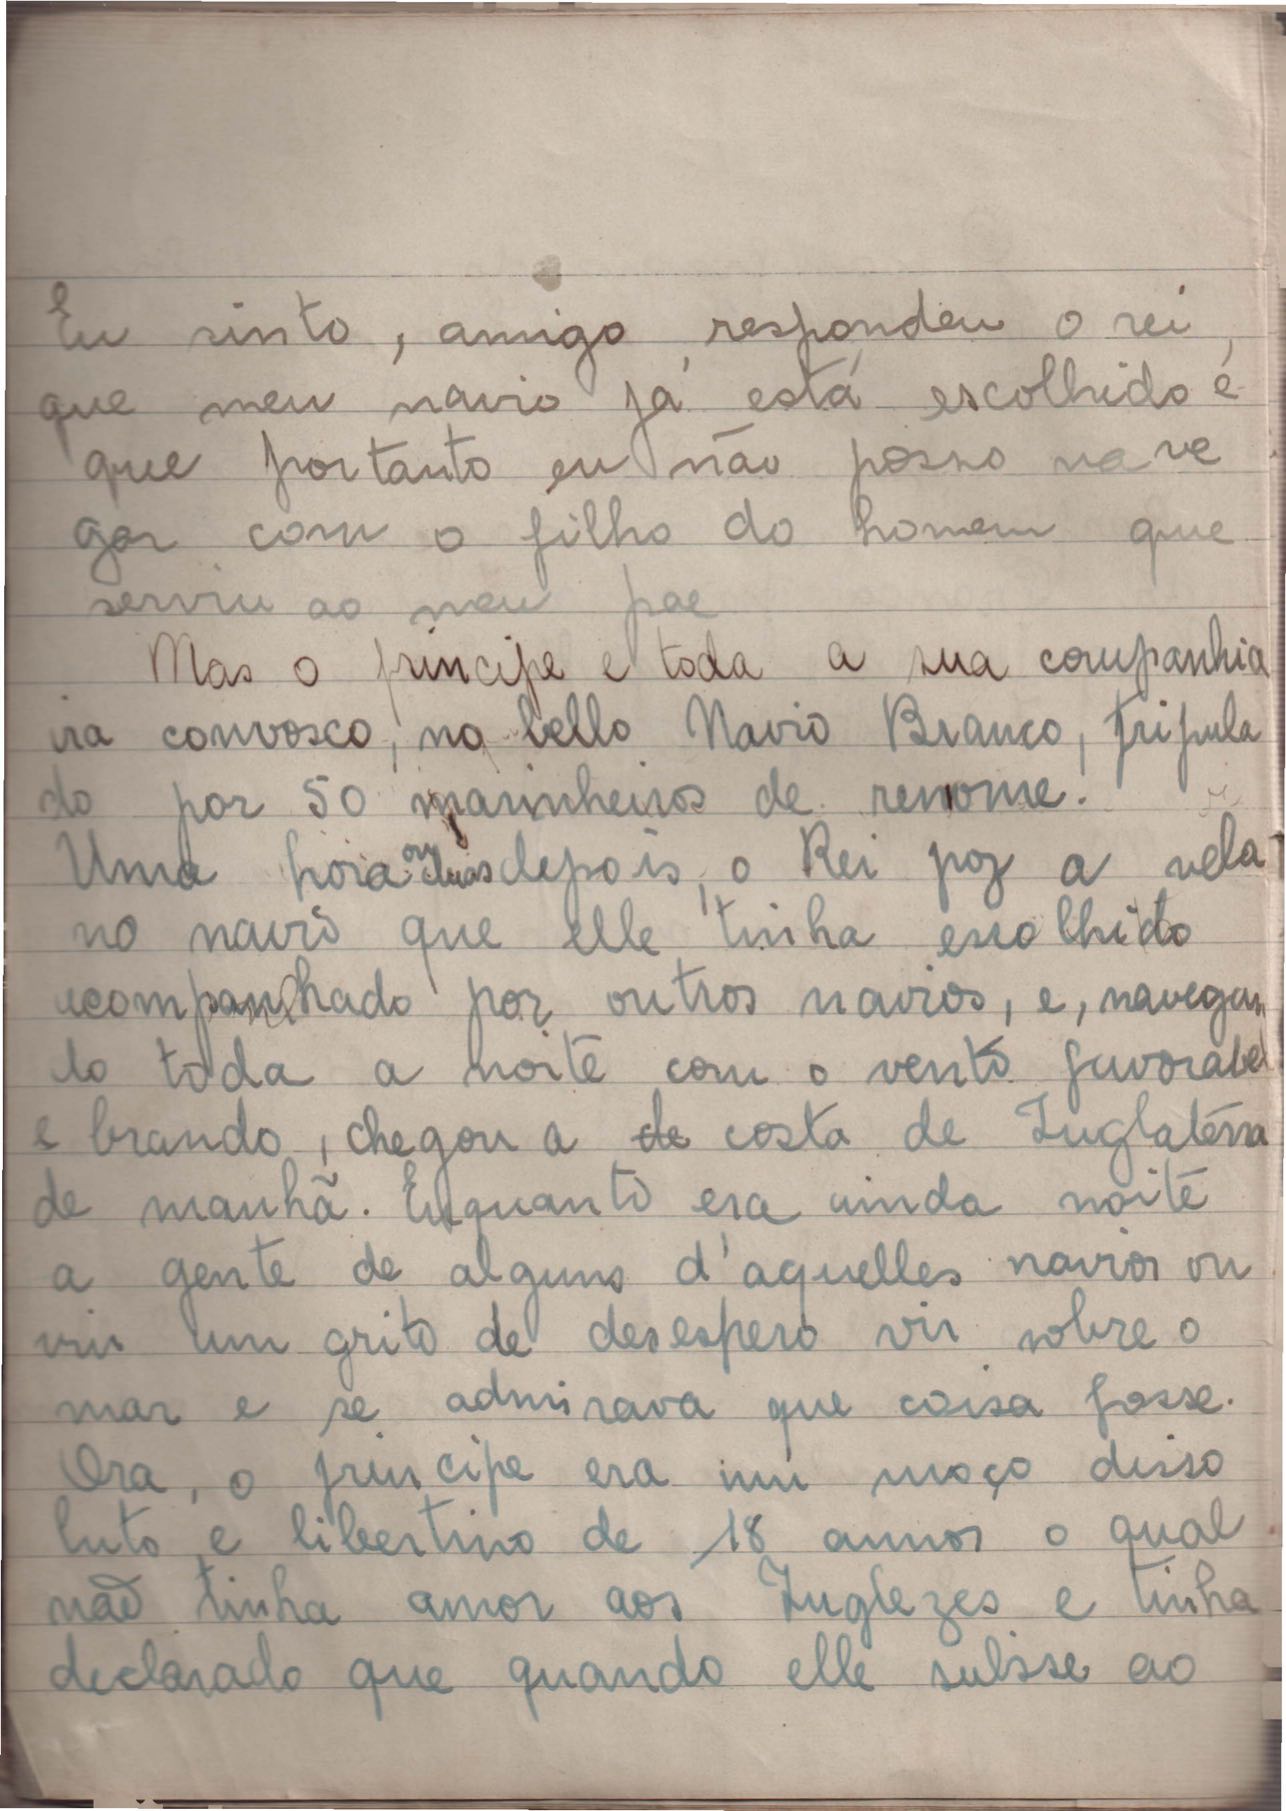 Eu sinto, amigo, respondeu o rei,
que meu navio já está escolhido e
que portanto eu não posso nave
gar com o filho do homem que
serviu ao meu pae
Mas o principe e toda a sua companhia
ira convosco, no bello Navio Branco, tripula
do por 50 marinheiros de renome.
Uma hora ou duas depois, o Rei poz a vela
no navio que elle tinha escolhido
acompanhado por outros navios, e, navegan
do toda a noite com o vento favoravel
e brando, chegou a de costa de Inglaterra
de manhã. Enquanto era ainda noite
a gente de alguns d'aquelles navios ou
viu um grito de desespero vir sobre o
mar e se admirava que coisa fosse.
Ora, o principe era um moço disso
luto e libertino de 18 annos o qual
não tinha amor aos Inglezes e tinha
declarado que quando elle subisse ao